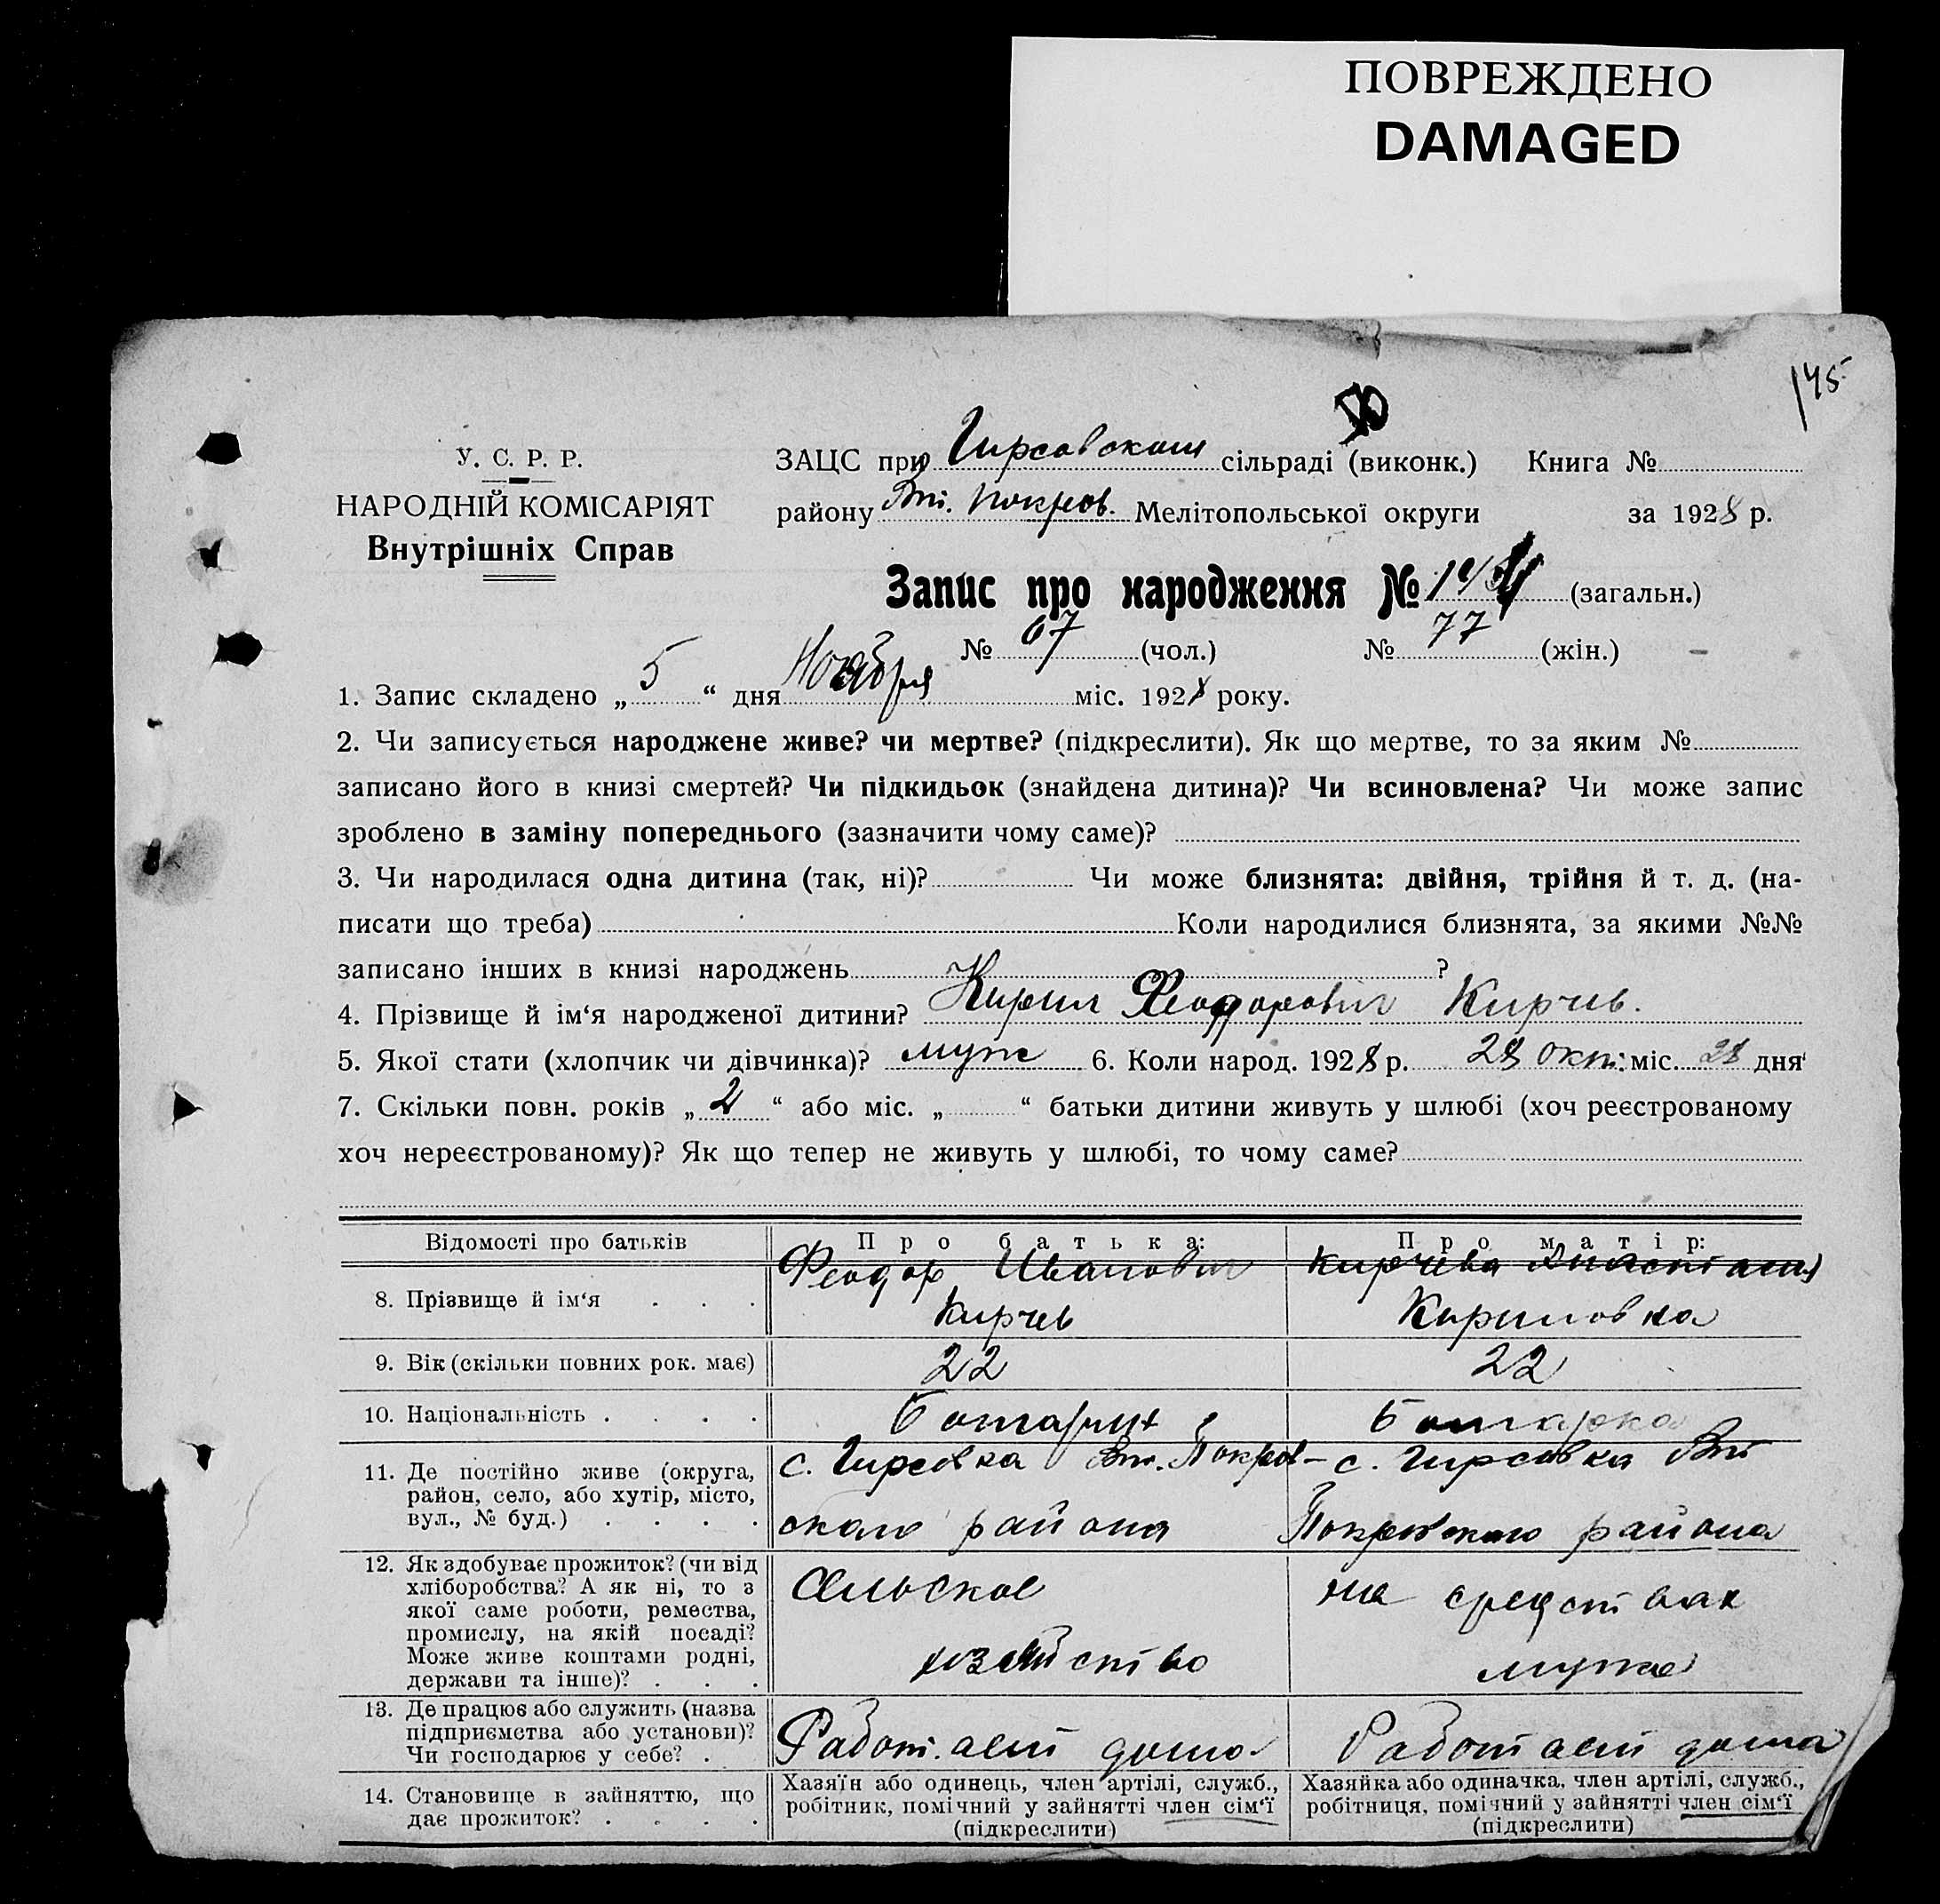 ПОВРЕЖДЕНО
DAMAGED
145
У. С. Р. Р.
НАРОДНІЙ КОМІСАРІЯТ
Внутрішніх Справ
ЗАЦС при Гирсовском сільраді (виконк.) Книга №
району Вт. Покров. Мелітопольської округи за 1928 р.
Запис про народження № (загальн.)
№ 67 (чол.) № 77 (жін.)
1. Запис складено „ 5 “ дня Ноября міс. 1928 року.
2. Чи записується народжене живе? чи мертве? (підкреслити). Як що мертве, то за яким №
записано його в книзі смертей? Чи підкидьок (знайдена дитина)? Чи всиновлена? Чи може запис
зроблено в заміну попереднього (зазначити чому саме)?
3. Чи народилася одна дитина (так, ні)? Чи може близнята: двійня, трійня й т. д. (на-
писати що треба) Коли народилися близнята, за якими №№
записано інших в книзі народжень ?
4. Прізвище й ім‘я народженої дитини? Кирил Феодорович Кирчев.
5. Якої стати (хлопчик чи дівчинка)? муж 6. Коли народ. 1928 р. 28 окт: міс. 28 дня
7. Скільки повн. років „ 2 “ або міс. „ “ батьки дитини живуть у шлюбі (хоч реєстрованому
хоч нереєстрованому)? Як що тепер не живуть у шлюбі, то чому саме?
Відомості про батьків Про батька: Про матір:
8. Прізвище й ім‘я . . . Феодор Иванович Кирчев Кирчева Анастасия Кириловна
9. Вік (скільки повних рок. має) 22 22
10. Національність . . . . болгарин болгарка
11. Де постійно живе (округа,
район, село, або хутір, місто,
вул., № буд.) . . . .
с. Гирсовка Вт. Покров-
ского района
с. Гирсовка Вт
Покровского района
12. Як здобуває прожиток? (чи від
хліборобства? А як ні, то з
якої саме роботи, ремества,
промислу, на якій посаді?
Може живе коштами родні,
держави та інше)? . . .
Сельское
хозяйство
на средствах
мужа
13. Де працює або служить (назва
підприємства або установи)?
Чи господарює у себе? .
Работает дома
Работает дома
14. Становище в зайняттю, що
дає прожиток? . . . .
Хазяїн або одинець, член артілі, служб.,
робітник, помічний у зайнятті член сім‘ї
(підкреслити)
Хазяйка або одиначка, член артілі, служб.,
робітниця, помічний у зайнятті член сім‘ї
(підкреслити)